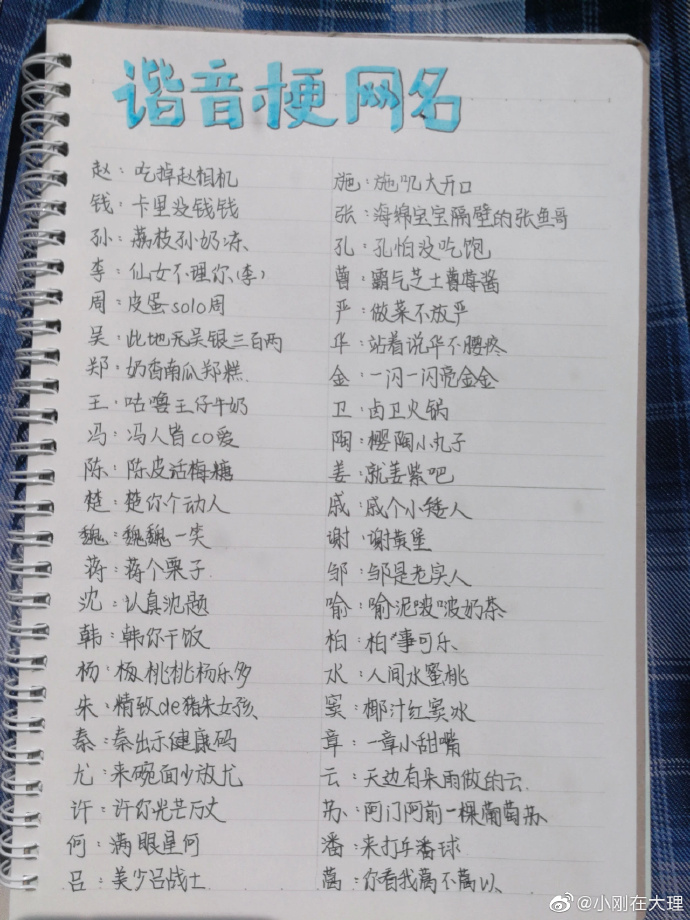 谐音梗网名
赵：吃掉赵相机
钱：卡里没钱钱
孙：荔枝孙奶冻
李：仙女不理你(李)
周：皮蛋solo周
吴：此地无吴银三百两
郑：奶香南瓜郑糕
王：咕噜王仔牛奶
冯：冯人皆co爱
陈：陈皮话梅糖
楚：楚你个动人
魏：魏魏一笑
蒋：蒋个栗子
沈：认真沈题
韩：韩你干饭
杨：杨桃桃杨乐多
朱：精致de猪朱女孩
秦：秦出示健康码
尤：来碗面少放尤
许：许你光芒万丈
何：满眼星何
吕：美少吕战士
施：施叽大开口
张：海绵宝宝隔壁的张鱼哥
孔：孔怕没吃饱
曹：霸气芝士曹莓酱
严：做菜不放严
华：站着说华不腰疼
金：一闪一闪亮金金
卫：卤卫火锅
陶：樱陶小丸子
姜：就姜紫吧
戚：戚个小矮人
谢：谢黄堡
邹：邹是老实人
喻：喻泥啵啵奶茶
柏：柏事可乐
水：人间水蜜桃
窦：椰汁红窦冰
章：一章小甜嘴
云：天边有朵雨做的云
苏：阿门阿前一棵葡萄苏
潘：来打乒潘球
葛：你看我葛不葛以
@小刚在大理